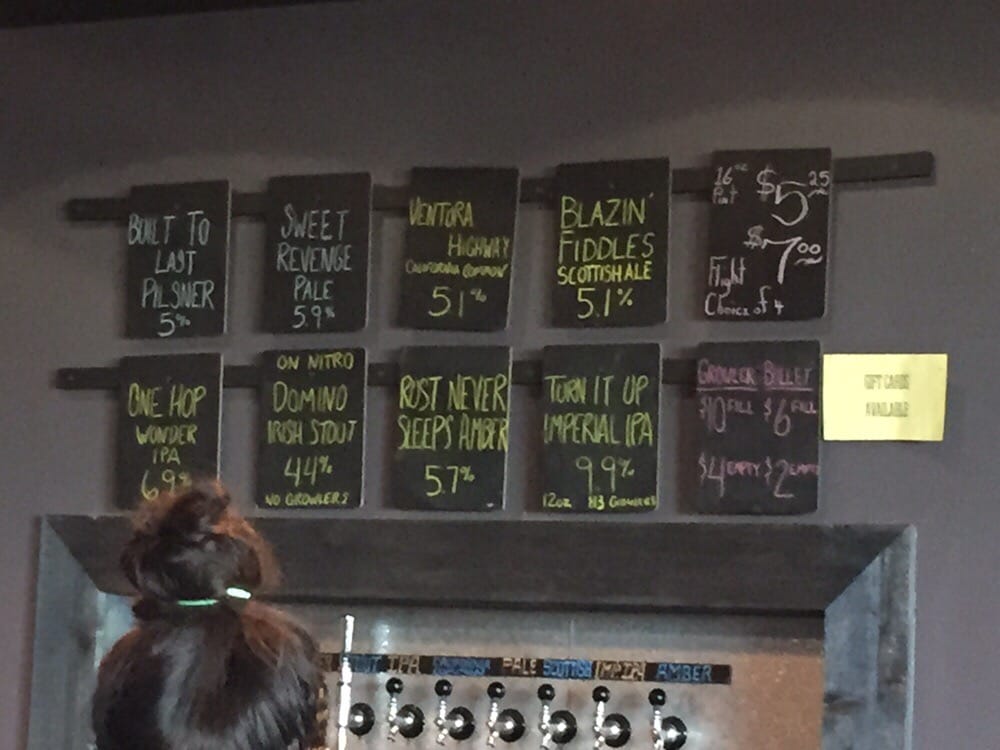 BUILT TO
LAST
PILSNER
5%
SWEET
REVENGE
PALE
5.9%
VENTORA
HIGHWAY
CALIFORNIA COMMON
5.1%
BLAZIN'
FIDDLES
SCOTTISH ALE
5.1%
16oz
Pint
$5.25
$7.00
Flight
Choice of 4
ONE HOP
WONDER
IPA
6.9%
ON NITRO
DOMINO
IRISH STOUT
4.4%
NO GROWLERS
RUST NEVER
SLEEPS AMBER
5.7%
TURN IT UP
IMPERIAL IPA
9.9%
12oz GROWLERS
GROWLER BULLET
$10 FILL $6 FILL
$4 EMPTY $2 EMPTY
GIFT CARDS
AVAILABLE
IPA PALE SCOTTISH AMBER